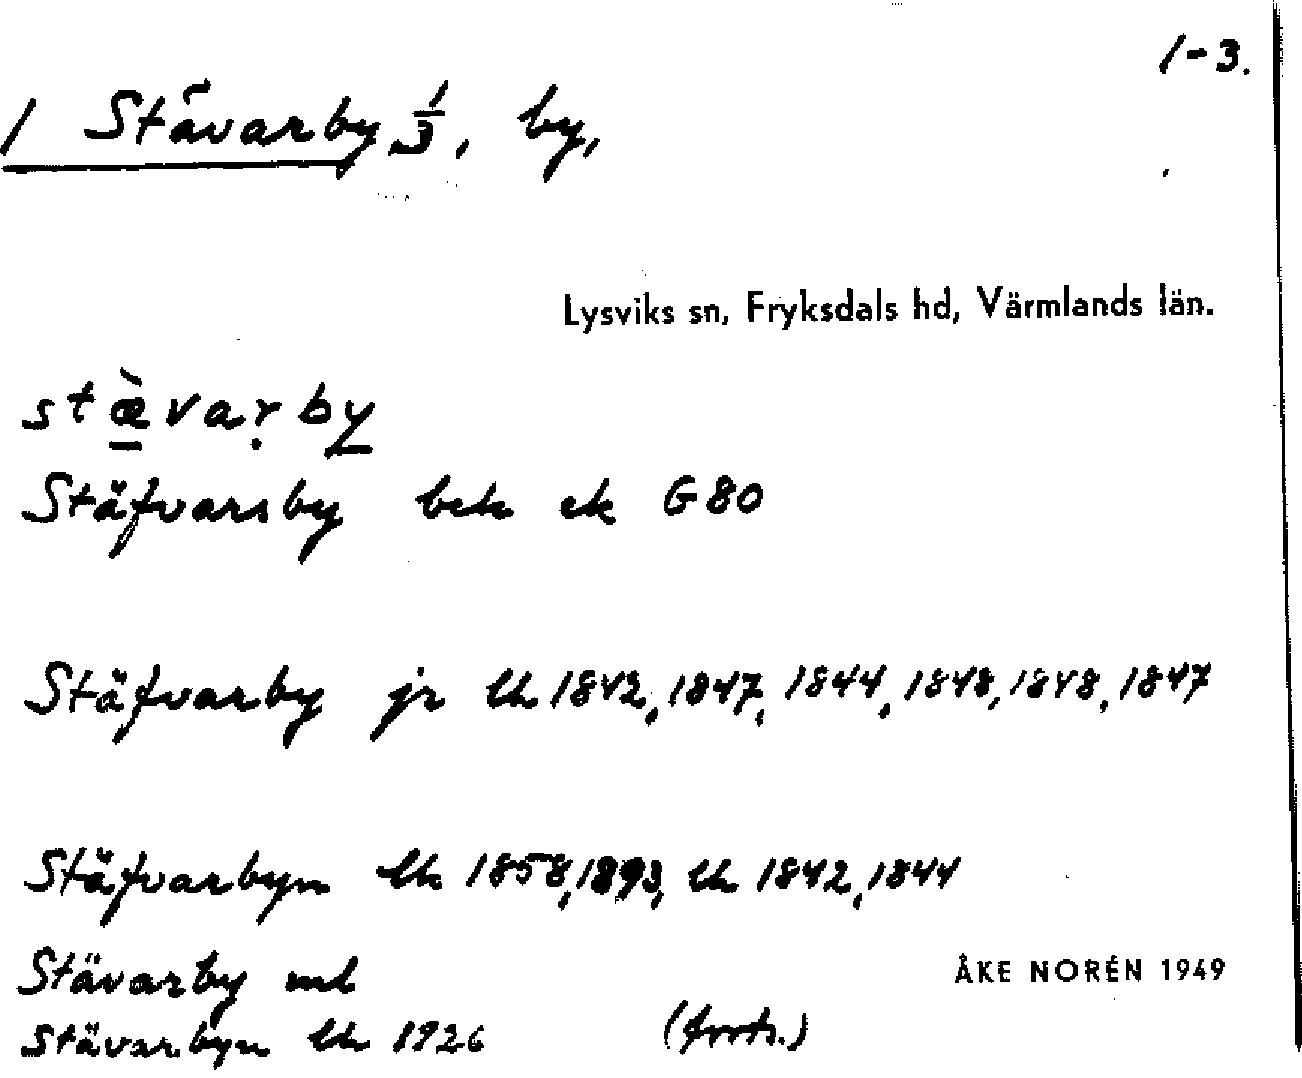 1-3.
1 Stävarby 1/3, by,
Lysviks sn, Fryksdals hd, Värmlands län.
stæ̀varby
Stäfvarsby bek ek G80
Stäfvarby jr lh 1842, 1847, 1844, 1848, 1848, 1847
Stäfvarbyn lh 1858, 1893, lh 1842, 1844
Stävarby md
ÅKE NORÉN 1949
Stävarbyn lh 1926 (forts.)